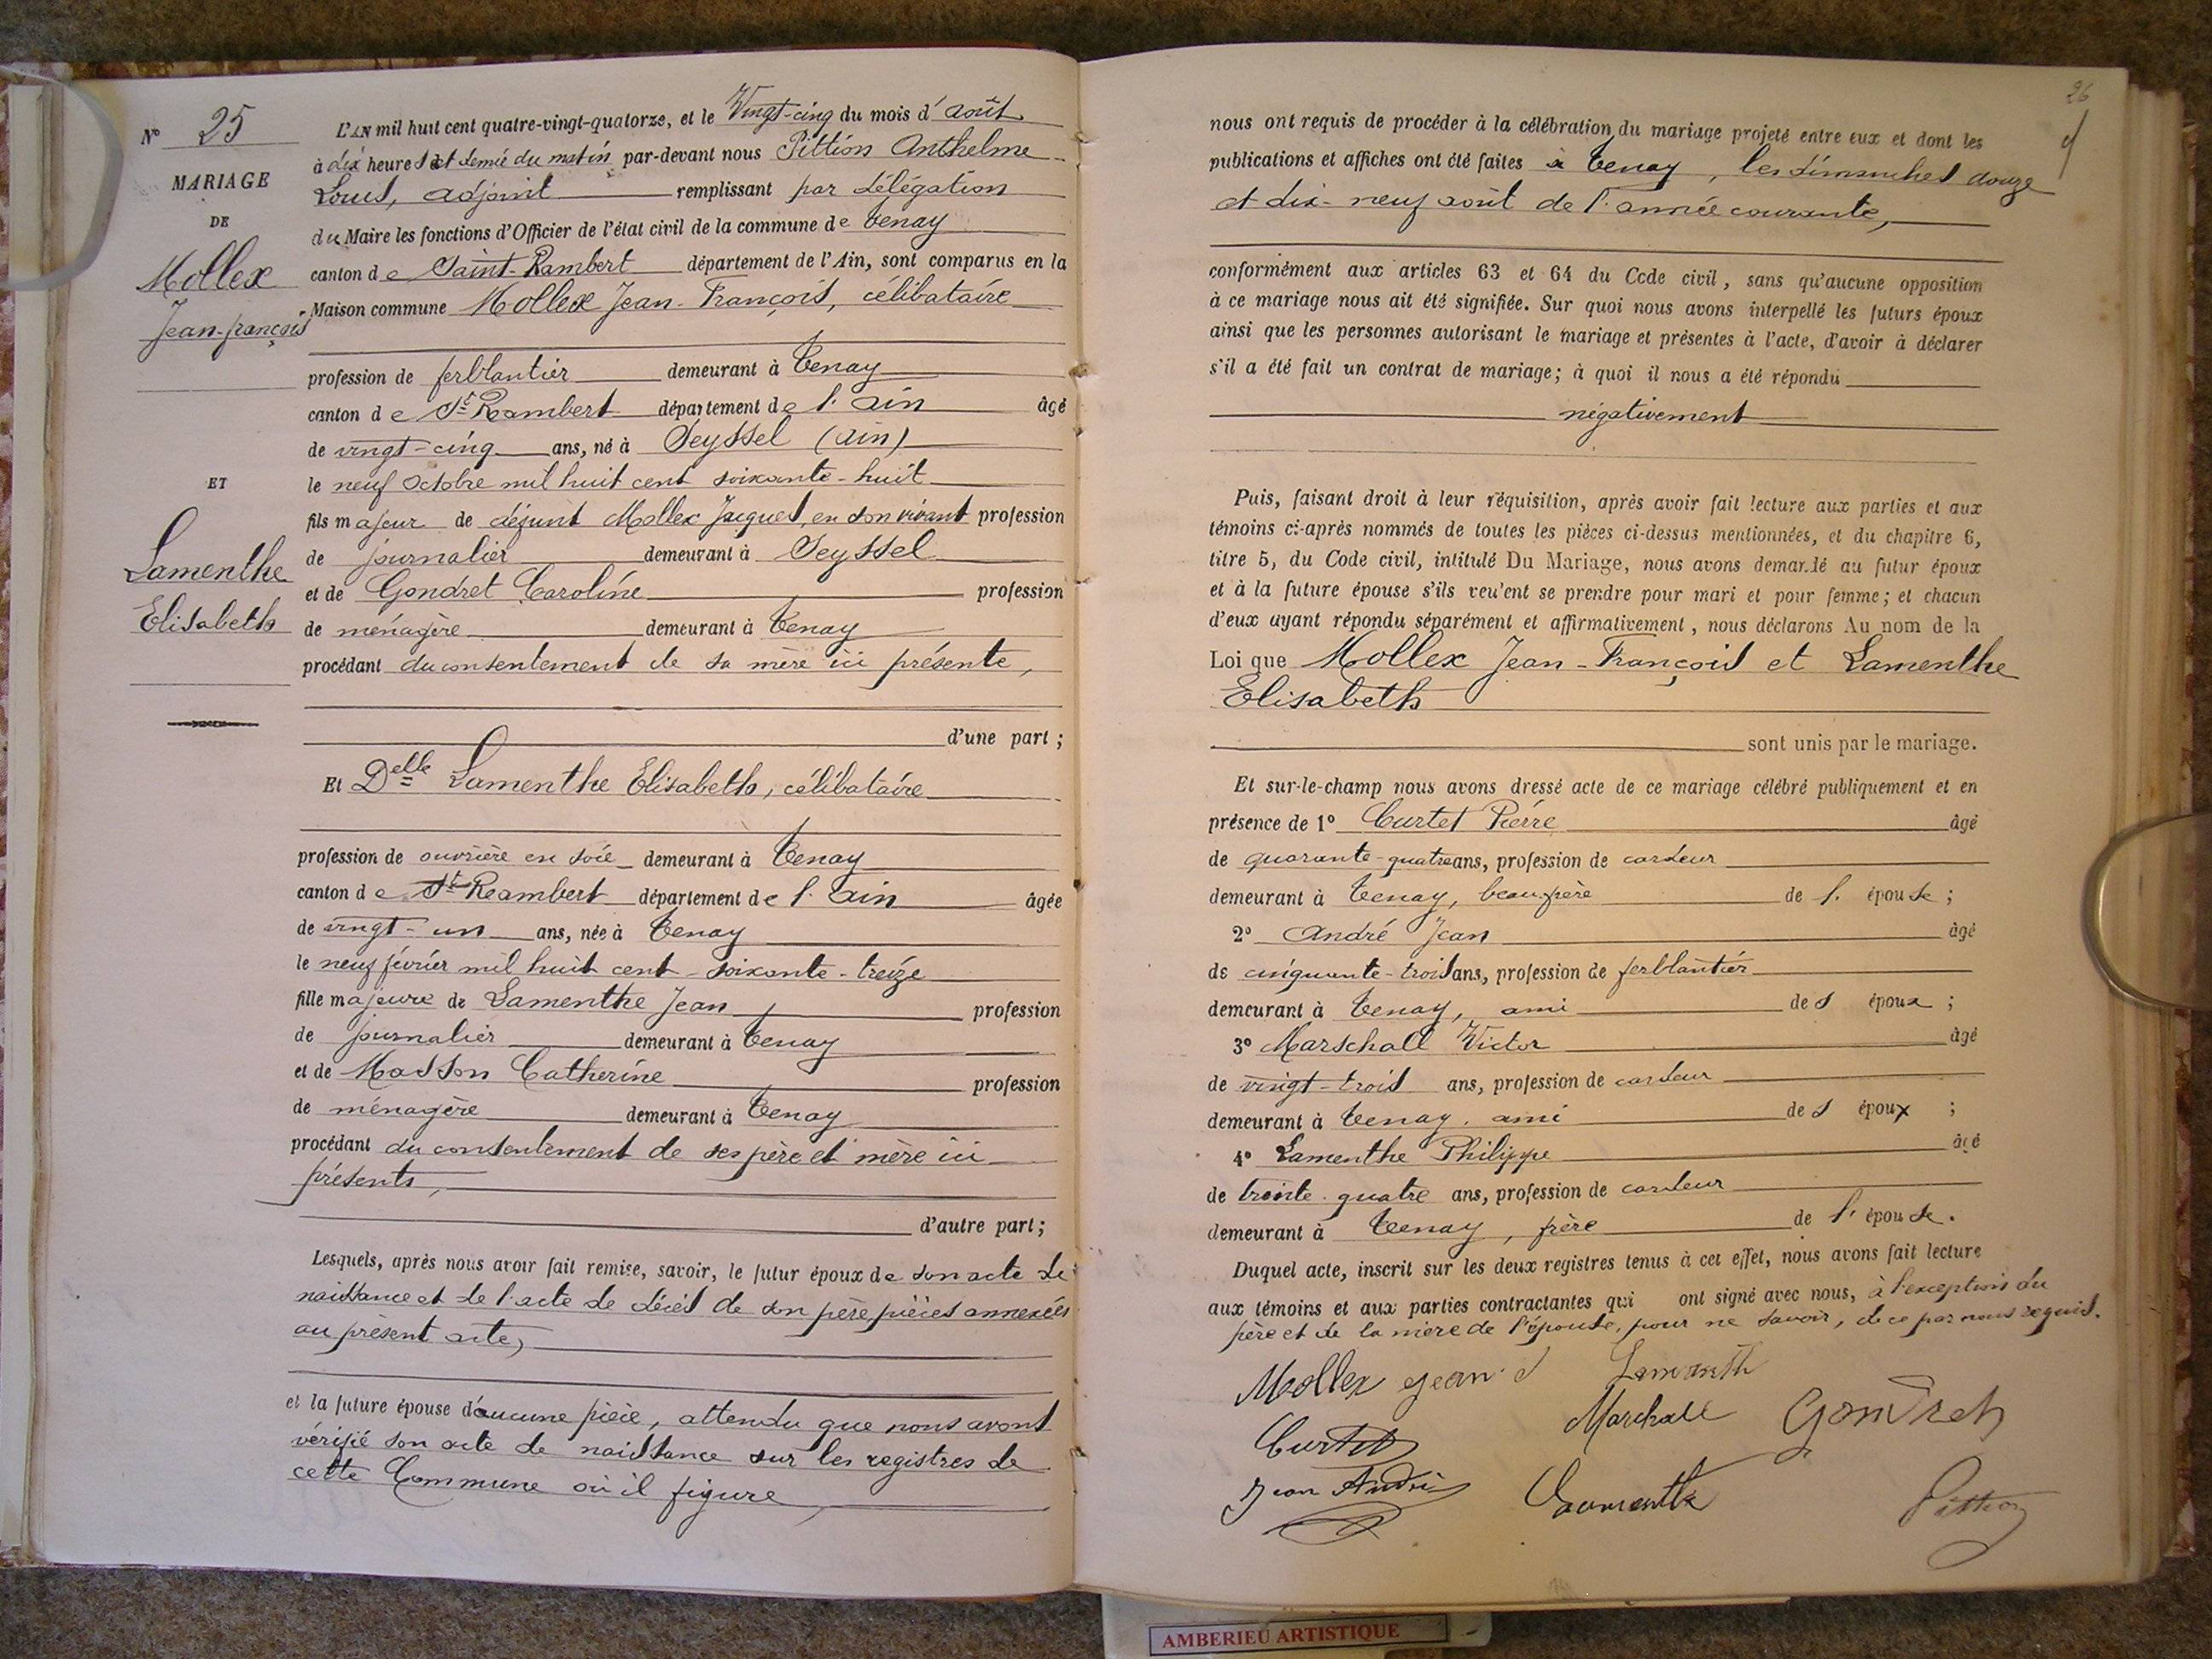 N° 25
MARIAGE
DE
Mollex
Jean-françois
ET
Lamenthe
Elisabeth
L'AN mil huit cent quatre-vingt-quatorze, et le Vingt-cinq du mois d'août
à dix heures et demie du matin par-devant nous Pittion Anthelme
Louis, adjoint remplissant par délégation
du Maire les fonctions d'Officier de l'état civil de la commune de Tenay
canton de Saint-Rambert département de l'Ain, sont comparus en la
Maison commune Mollex Jean-François, célibataire
profession de ferblantier demeurant à Tenay
canton de St Rambert département de l'Ain âgé
de vingt-cinq ans, né à Seyssel (Ain)
le neuf Octobre mil huit cent soixante-huit
fils majeur de défunt Mollex Jacques, en son vivant profession
de journalier demeurant à Seyssel
et de Gondret Caroline profession
de ménagère demeurant à Tenay
procédant du consentement de sa mère ici présente,
d'une part ;
Et Delle Lamenthe Elisabeth, célibataire
profession de ouvrière en soie demeurant à Tenay
canton de St Rambert département de l'Ain âgée
de vingt-un ans, née à Tenay
le neuf février mil huit cent soixante-treize
fille majeure de Lamenthe Jean profession
de journalier demeurant à Tenay
et de Masson Catherine profession
de ménagère demeurant à Tenay
procédant du consentement de ses père et mère ici
présents,
d'autre part ;
Lesquels, après nous avoir fait remise, savoir, le futur époux de son acte de
naissance et de l'acte de décès de son père, pièces annexées
au présent acte,
et la future épouse d'aucune pièce, attendu que nous avons
vérifié son acte de naissance sur les registres de
cette Commune où il figure,
26
nous ont requis de procéder à la célébration du mariage projeté entre eux et dont les
publications et affiches ont été faites à Tenay, les dimanches douze
et dix-neuf août de l'année courante,
conformément aux articles 63 et 64 du Code civil, sans qu'aucune opposition
à ce mariage nous ait été signifiée. Sur quoi nous avons interpellé les futurs époux
ainsi que les personnes autorisant le mariage et présentes à l'acte, d'avoir à déclarer
s'il a été fait un contrat de mariage; à quoi il nous a été répondu
négativement
Puis, faisant droit à leur réquisition, après avoir fait lecture aux parties et aux
témoins ci-après nommés de toutes les pièces ci-dessus mentionnées, et du chapitre 6,
titre 5, du Code civil, intitulé Du Mariage, nous avons demandé au futur époux
et à la future épouse s'ils veulent se prendre pour mari et pour femme; et chacun
d'eux ayant répondu séparément et affirmativement, nous déclarons Au nom de la
Loi que Mollex Jean-François et Lamenthe
Elisabeth
sont unis par le mariage.
Et sur-le-champ nous avons dressé acte de ce mariage célébré publiquement et en
présence de 1° Curtet Pierre âgé
de quarante-quatre ans, profession de cardeur
demeurant à Tenay, beau-père de l'épouse ;
2° André Jean âgé
de cinquante-trois ans, profession de ferblantier
demeurant à Tenay, ami des époux ;
3° Marschall Victor âgé
de vingt-trois ans, profession de cardeur
demeurant à Tenay, ami des époux ;
4° Lamenthe Philippe âgé
de trente-quatre ans, profession de cardeur
demeurant à Tenay, frère de l'épouse.
Duquel acte, inscrit sur les deux registres tenus à cet effet, nous avons fait lecture
aux témoins et aux parties contractantes qui ont signé avec nous, à l'exception du
père et de la mère de l'épouse, pour ne savoir, de ce par nous requis.
Mollex Jean
Curtet Marchall Gondret
Jean André Lamenthe Pittion
AMBERIEU ARTISTIQUE